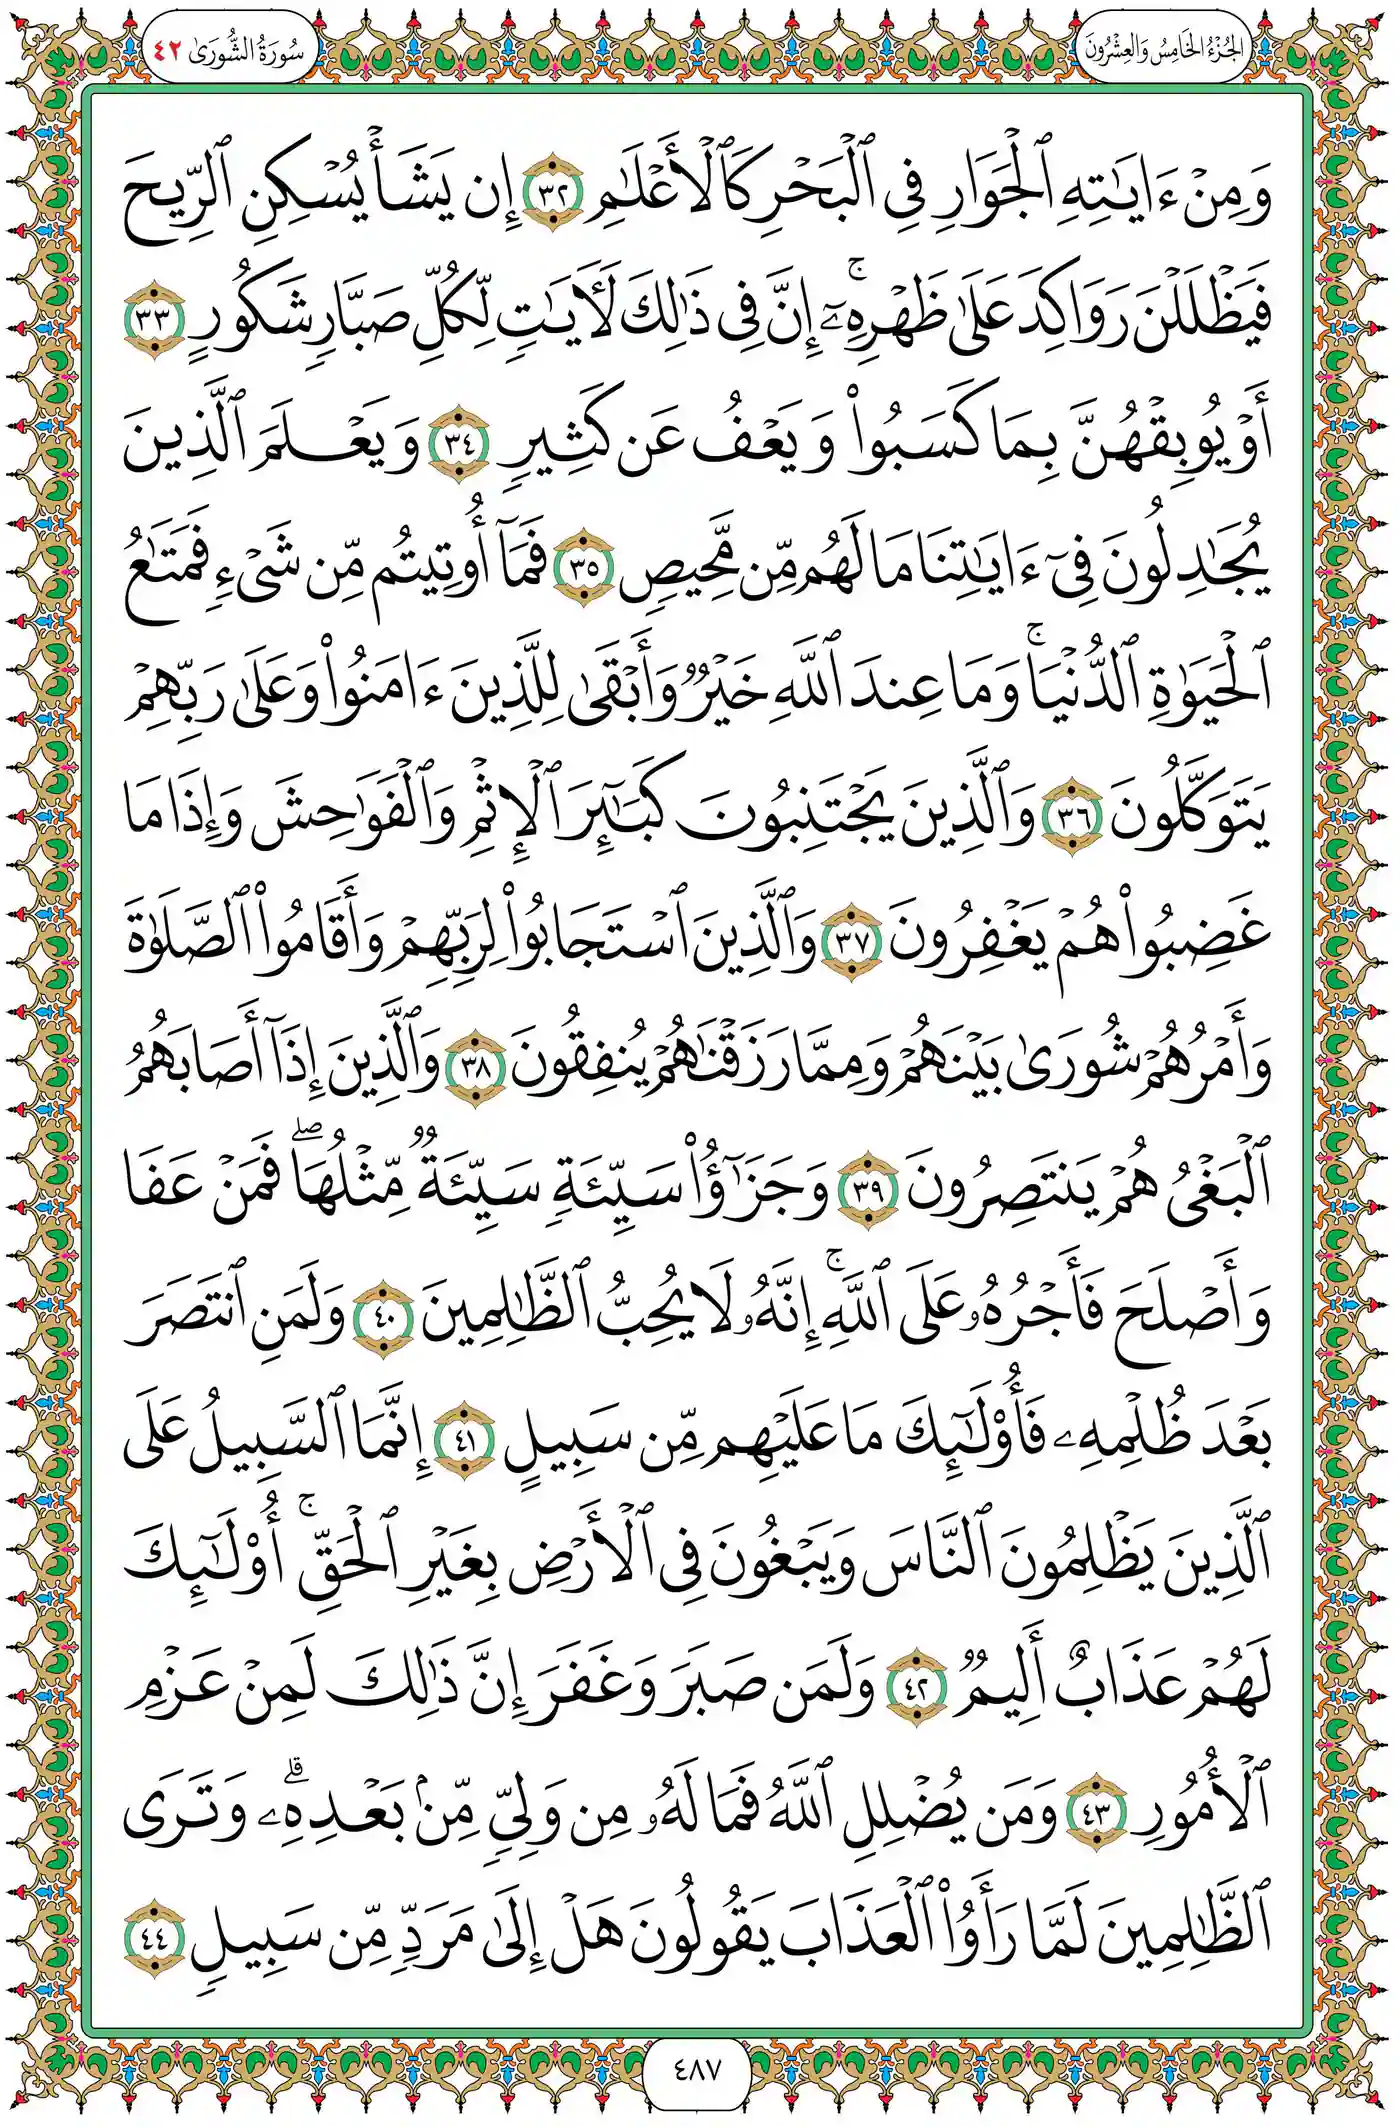 الجُزْءُ الخَامِسُ وَالعِشْرُونَ
سُورَةُ الشُّورَىٰ ٤٢
وَمِنْ ءَايَٰتِهِ ٱلْجَوَارِ فِى ٱلْبَحْرِ كَٱلْأَعْلَٰمِ ٣٢ إِن يَشَأْ يُسْكِنِ ٱلرِّيحَ
فَيَظْلَلْنَ رَوَاكِدَ عَلَىٰ ظَهْرِهِۦٓ ۚ إِنَّ فِى ذَٰلِكَ لَءَايَٰتٍ لِّكُلِّ صَبَّارٍ شَكُورٍ ٣٣
أَوْ يُوبِقْهُنَّ بِمَا كَسَبُوا۟ وَيَعْفُ عَن كَثِيرٍ ٣٤ وَيَعْلَمَ ٱلَّذِينَ
يُجَٰدِلُونَ فِىٓ ءَايَٰتِنَا مَا لَهُم مِّن مَّحِيصٍ ٣٥ فَمَآ أُوتِيتُم مِّن شَىْءٍ فَمَتَٰعُ
ٱلْحَيَوٰةِ ٱلدُّنْيَا ۚ وَمَا عِندَ ٱللَّهِ خَيْرٌ وَأَبْقَىٰ لِلَّذِينَ ءَامَنُوا۟ وَعَلَىٰ رَبِّهِمْ
يَتَوَكَّلُونَ ٣٦ وَٱلَّذِينَ يَجْتَنِبُونَ كَبَٰٓئِرَ ٱلْإِثْمِ وَٱلْفَوَٰحِشَ وَإِذَا مَا
غَضِبُوا۟ هُمْ يَغْفِرُونَ ٣٧ وَٱلَّذِينَ ٱسْتَجَابُوا۟ لِرَبِّهِمْ وَأَقَامُوا۟ ٱلصَّلَوٰةَ
وَأَمْرُهُمْ شُورَىٰ بَيْنَهُمْ وَمِمَّا رَزَقْنَٰهُمْ يُنفِقُونَ ٣٨ وَٱلَّذِينَ إِذَآ أَصَابَهُمُ
ٱلْبَغْىُ هُمْ يَنتَصِرُونَ ٣٩ وَجَزَٰٓؤُا۟ سَيِّئَةٍ سَيِّئَةٌ مِّثْلُهَا ۖ فَمَنْ عَفَا
وَأَصْلَحَ فَأَجْرُهُۥ عَلَى ٱللَّهِ ۚ إِنَّهُۥ لَا يُحِبُّ ٱلظَّٰلِمِينَ ٤٠ وَلَمَنِ ٱنتَصَرَ
بَعْدَ ظُلْمِهِۦ فَأُو۟لَٰٓئِكَ مَا عَلَيْهِم مِّن سَبِيلٍ ٤١ إِنَّمَا ٱلسَّبِيلُ عَلَى
ٱلَّذِينَ يَظْلِمُونَ ٱلنَّاسَ وَيَبْغُونَ فِى ٱلْأَرْضِ بِغَيْرِ ٱلْحَقِّ ۚ أُو۟لَٰٓئِكَ
لَهُمْ عَذَابٌ أَلِيمٌ ٤٢ وَلَمَن صَبَرَ وَغَفَرَ إِنَّ ذَٰلِكَ لَمِنْ عَزْمِ
ٱلْأُمُورِ ٤٣ وَمَن يُضْلِلِ ٱللَّهُ فَمَا لَهُۥ مِن وَلِىٍّ مِّنۢ بَعْدِهِۦ ۗ وَتَرَى
ٱلظَّٰلِمِينَ لَمَّا رَأَوُا۟ ٱلْعَذَابَ يَقُولُونَ هَلْ إِلَىٰ مَرَدٍّ مِّن سَبِيلٍ ٤٤
٤٨٧